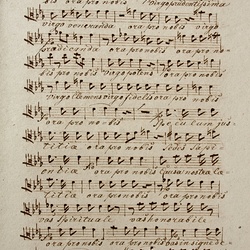 bis ora pro nobis Virgo prudentissima
virgo veneranda ora pro nobis virgo
praedicanda ora pro nobis ora pro no-
bis pro nobis Virgo potens ora pro nobis
virgo clemens virgo fidelis ora pro nobis
Speculum jus-
titiae ora pro nobis Sedes Sapi-
entiae ora pro nobis Causa nostrae lae-
titiae ora pro nobis ora pro nobis
vas Spirituale vas honorabile
ora pro nobis ora pro nobis vas insigne de-